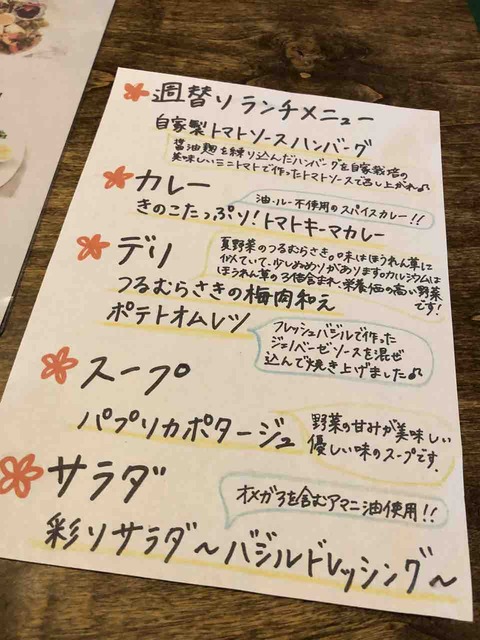 週替りランチメニュー
自家製トマトソースハンバーグ
醤油麹を練り込んだハンバーグを自家栽培の
美味しいミニトマトで作ったトマトソースで召し上がれ♪
カレー
油・ルー不使用のスパイスカレー!!
きのこたっぷり!トマトキーマカレー
デリ
夏野菜のつるむらさき。味はほうれん草に
似ていて、少しぬめりがありますカルシウムは
ほうれん草の3倍含まれ、栄養価の高い野菜
です!
つるむらさきの梅肉和え
ポテトオムレツ
フレッシュバジルで作った
ジェノベーゼソースを混ぜ
込んで焼き上げました♪
スープ
パプリカポタージュ
野菜の甘みが美味しい
優しい味のスープです.
サラダ
オメガ3を含むアマニ油使用!!
彩りサラダ~バジルドレッシング~